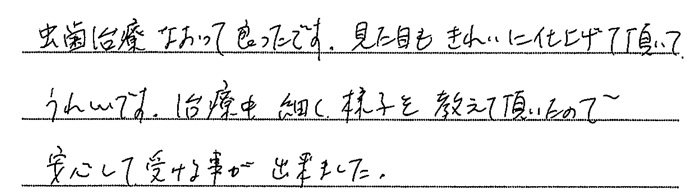 虫歯治療なおって良ったです。見た目もきれいに仕上げて頂いて
うれしいです。治療中細く様子を教えて頂いたので
安心して受ける事が出来ました。